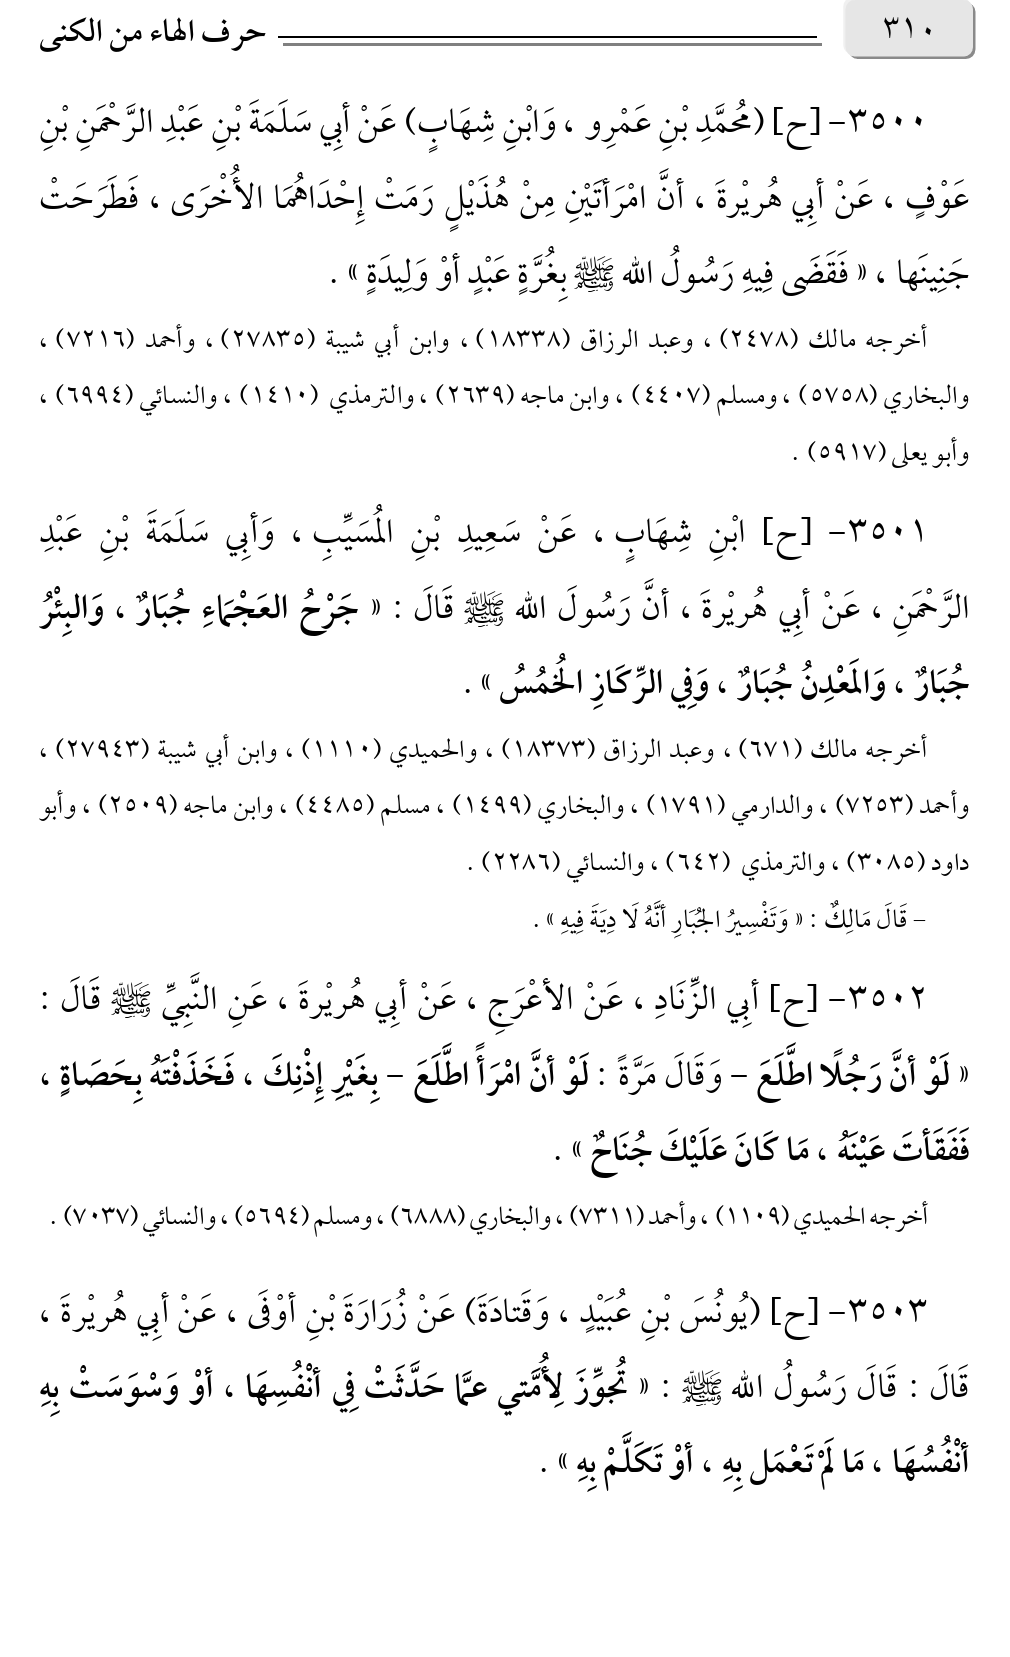 حرف الهاء من الكنى ٣١٠
٣٥٠٠- [ح] (مُحمَّدِ بْنِ عَمْرِو ، وَابْنِ شِهَابٍ) عَنْ أبِي سَلَمَةَ بْنِ عَبْدِ الرَّحْمَنِ بْنِ
عَوْفٍ ، عَنْ أبِي هُريْرةَ ، أنَّ امْرَأتَيْنِ مِنْ هُذَيْلٍ رَمَتْ إِحْدَاهُمَا الأُخْرَى ، فَطَرَحَتْ
جَنِينَها ، « فَقَضَى فِيهِ رَسُولُ الله ﷺ بِغُرَّةٍ عَبْدٍ أوْ وَلِيدَةٍ » .
أخرجه مالك (٢٤٧٨) ، وعبد الرزاق (١٨٣٣٨) ، وابن أبي شيبة (٢٧٨٣٥) ، وأحمد (٧٢١٦) ،
والبخاري (٥٧٥٨) ، ومسلم (٤٤٠٧) ، وابن ماجه (٢٦٣٩) ، والترمذي (١٤١٠) ، والنسائي (٦٩٩٤) ،
وأبو يعلى (٥٩١٧) .
٣٥٠١- [ح] ابْنِ شِهَابٍ ، عَنْ سَعِيدِ بْنِ الْمُسَيِّبِ ، وَأبِي سَلَمَةَ بْنِ عَبْدِ
الرَّحْمَنِ ، عَنْ أبِي هُريْرةَ ، أنَّ رَسُولَ الله ﷺ قَالَ : « جَرْحُ العَجْمَاءِ جُبَارٌ ، وَالبِئْرُ
جُبَارٌ ، وَالمَعْدِنُ جُبَارٌ ، وَفِي الرِّكَازِ الخُمُسُ » .
أخرجه مالك (٦٧١) ، وعبد الرزاق (١٨٣٧٣) ، والحميدي (١١١٠) ، وابن أبي شيبة (٢٧٩٤٣) ،
وأحمد (٧٢٥٣) ، والدارمي (١٧٩١) ، والبخاري (١٤٩٩) ، مسلم (٤٤٨٥) ، وابن ماجه (٢٥٠٩) ، وأبو
داود (٣٠٨٥) ، والترمذي (٦٤٢) ، والنسائي (٢٢٨٦) .
- قَالَ مَالِكٌ : « وَتَفْسِيرُ الجُبَارِ أنَّهُ لَا دِيَةَ فِيهِ » .
٣٥٠٢- [ح] أبِي الزِّنَادِ ، عَنْ الأعْرَجِ ، عَنْ أبِي هُريْرةَ ، عَنِ النَّبِيِّ ﷺ قَالَ :
« لَوْ أنَّ رَجُلًا اطَّلَعَ – وَقَالَ مَرَّةً : لَوْ أنَّ امْرَأً اطَّلَعَ – بِغَيْرِ إِذْنِكَ ، فَخَذَفْتَهُ بِحَصَاةٍ ،
فَفَقَأتَ عَيْنَهُ ، مَا كَانَ عَلَيْكَ جُنَاحٌ » .
أخرجه الحميدي (١١٠٩) ، وأحمد (٧٣١١) ، والبخاري (٦٨٨٨) ، ومسلم (٥٦٩٤) ، والنسائي (٧٠٣٧) .
٣٥٠٣- [ح] (يُونُسَ بْنِ عُبَيْدٍ ، وَقَتادَةَ) عَنْ زُرَارَةَ بْنِ أوْفَى ، عَنْ أبِي هُريْرةَ ،
قَالَ : قَالَ رَسُولُ الله ﷺ : « تُجوِّزَ لِأُمَّتي عمَّا حَدَّثَتْ فِي أنْفُسِهَا ، أوْ وَسْوَسَتْ بِهِ
أنْفُسُهَا ، مَا لَمْ تَعْمَل بِهِ ، أوْ تَكَلَّمْ بِهِ » .